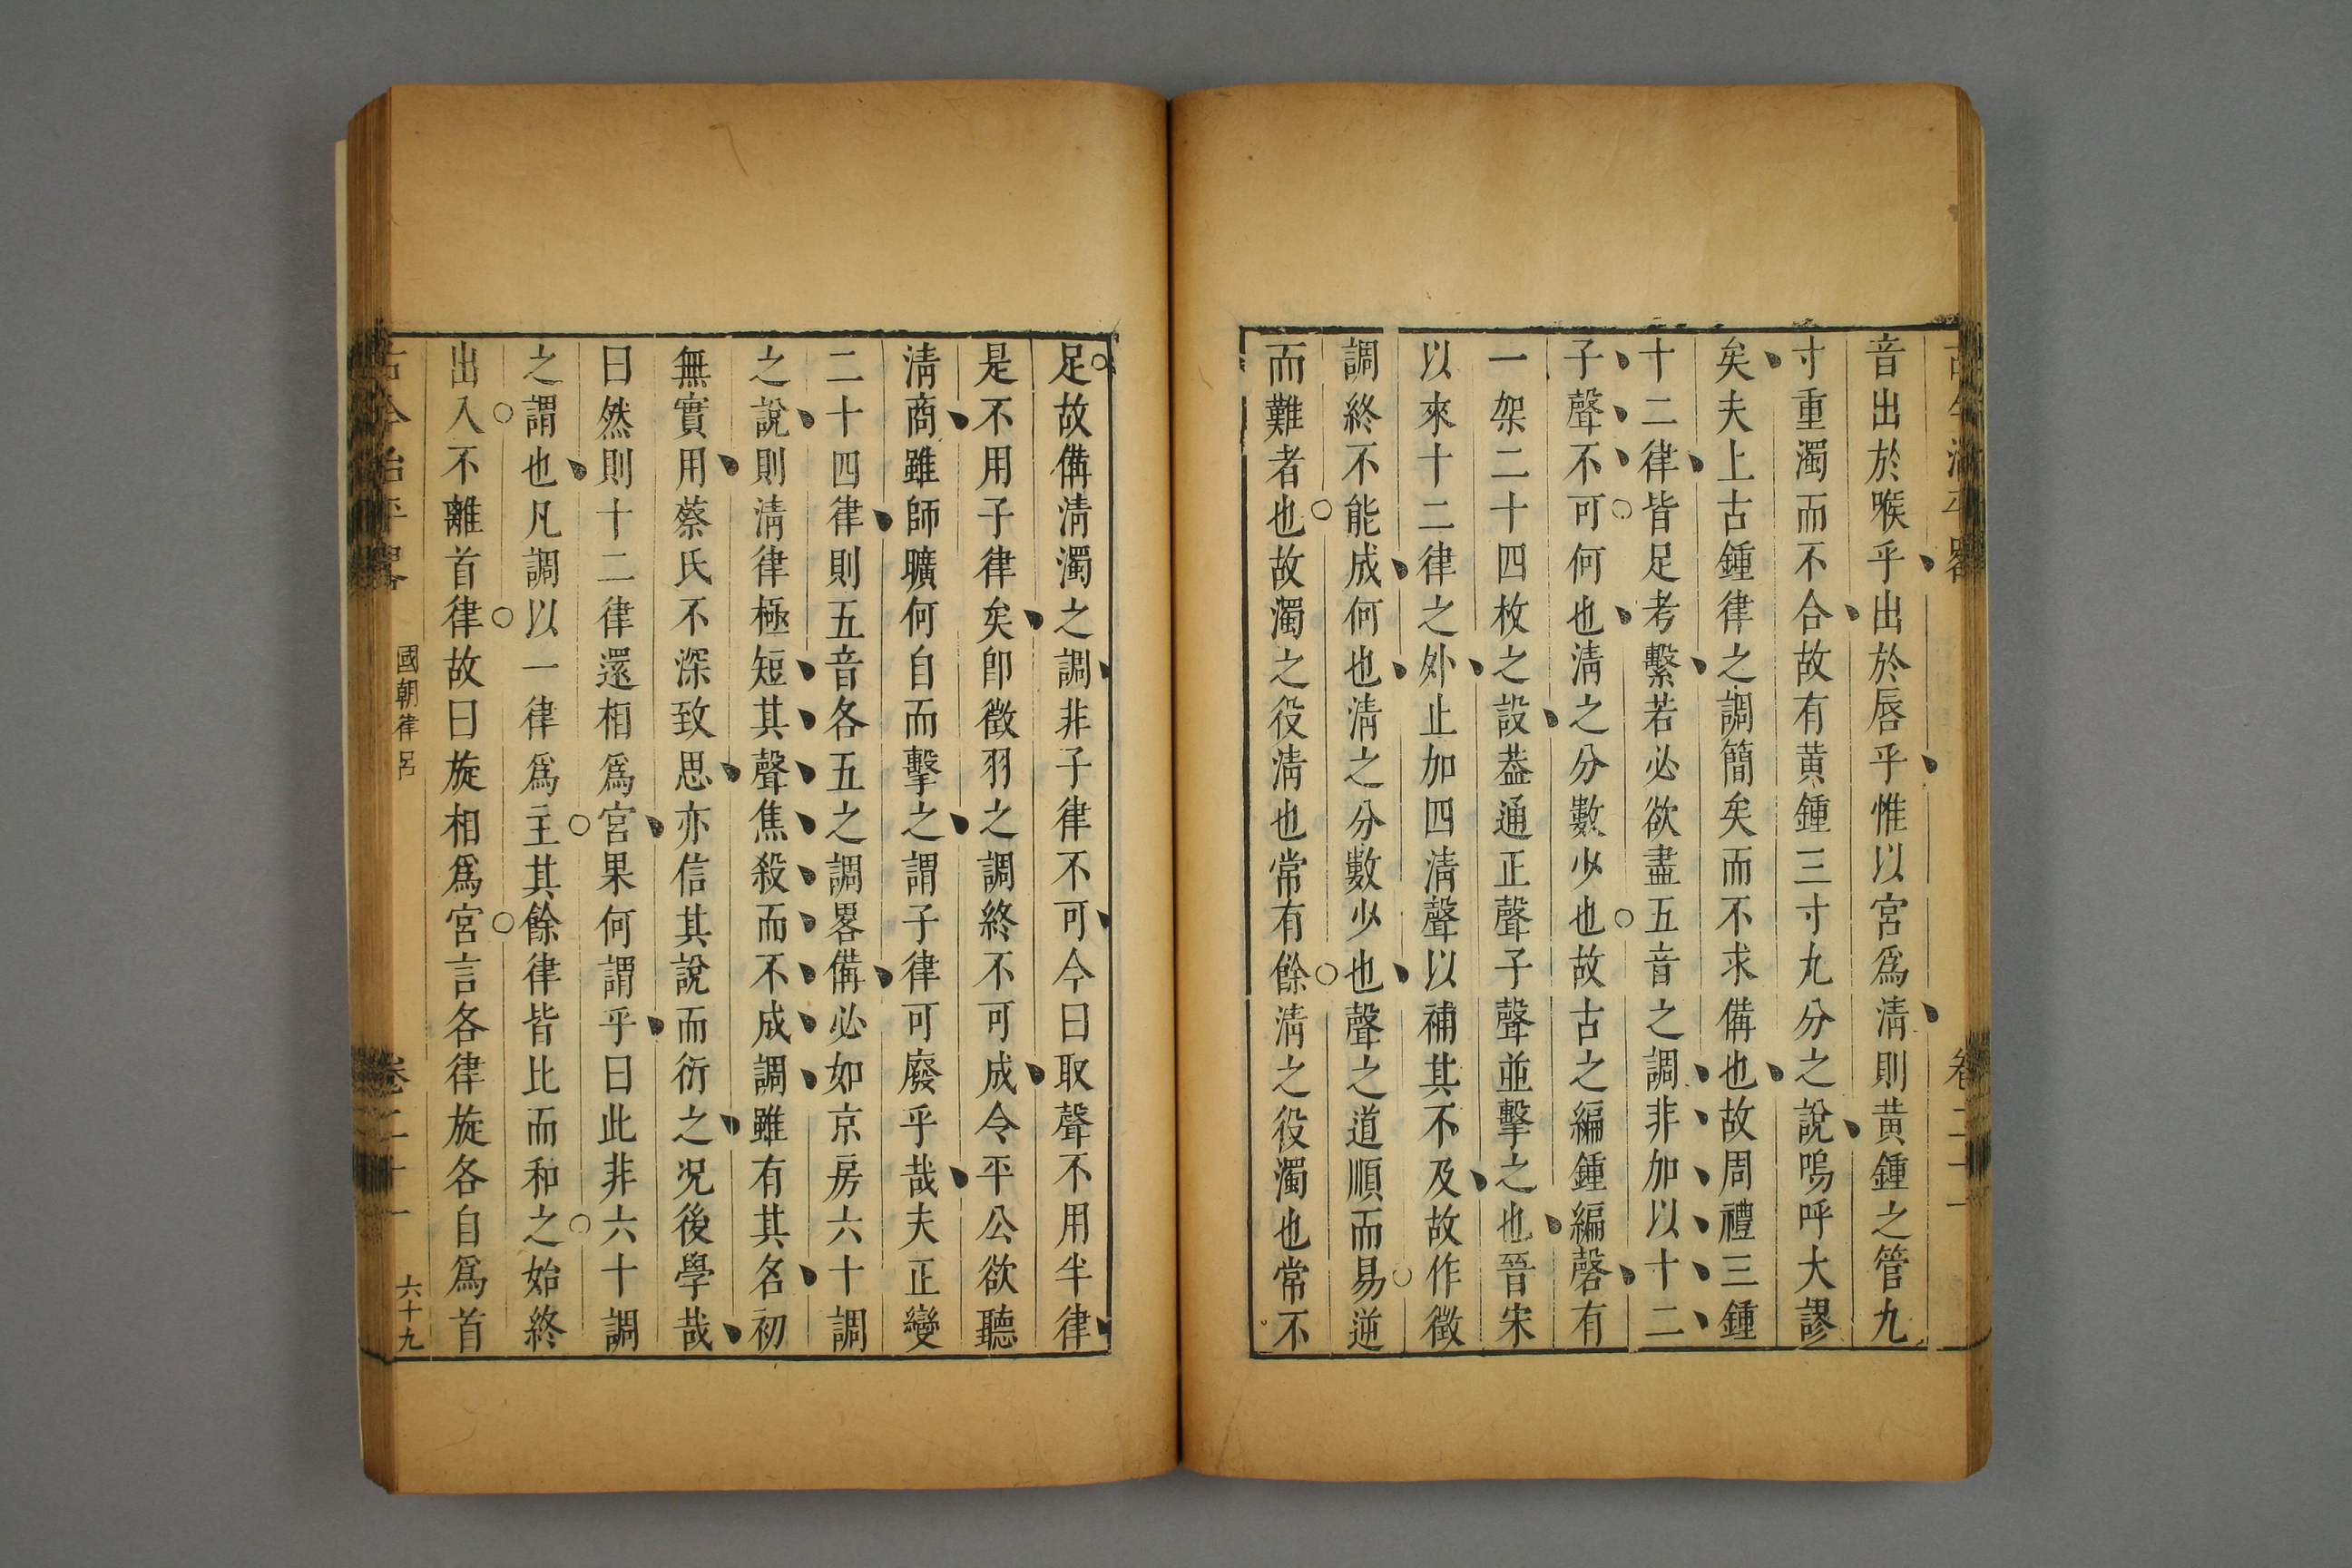 古今治平畧 卷二十一
音出於喉乎出於唇乎惟以宮爲淸則黄鍾之管九
寸重濁而不合故有黄鍾三寸九分之說嗚呼大謬
矣夫上古鍾律之調簡矣而不求備也故周禮三鍾
十二律皆足考繫若必欲盡五音之調非加以十二
子聲不可何也淸之分數少也故古之編鍾編磬有
一架二十四枚之設葢通正聲子聲並擊之也晉宋
以來十二律之外止加四淸聲以補其不及故作徵
調終不能成何也淸之分數少也聲之道順而易逆
而難者也故濁之役淸也常有餘淸之役濁也常不
足故備淸濁之調非子律不可今曰取聲不用半律
是不用子律矣卽徵羽之調終不可成令平公欲聽
淸商雖師曠何自而擊之謂子律可廢乎哉夫正變
二十四律則五音各五之調畧備必如京房六十調
之說則淸律極短其聲焦殺而不成調雖有其名初
無實用蔡氏不深致思亦信其說而衍之况後學哉
曰然則十二律還相爲宮果何謂乎曰此非六十調
之謂也凡調以一律爲主其餘律皆比而和之始終
出入不離首律故曰旋相爲宮言各律旋各自爲首
古今治平畧 國朝律呂 卷二十一 六十九